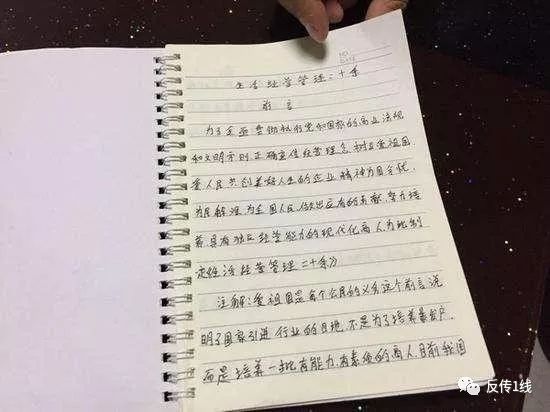 NO.
DATE
生活经营管理二十条
前言
为了全面贯彻执行党和国家的商业法规
和文明守则正确宣传经营理念,树立爱祖国
爱人民共创美好人生的企业精神为国分忧
为民解难为全国人民做出应有的贡献,努力培
养具有独立经营能力的现代化商人为此制
定《生活经营管理二十条》
注解:爱祖国是每个公民的义务这个前言说
明了国家引进行业的目地,不是为了培养暴发户.
而是培养一批有能力,有素质的商人.目前我国
反传1线